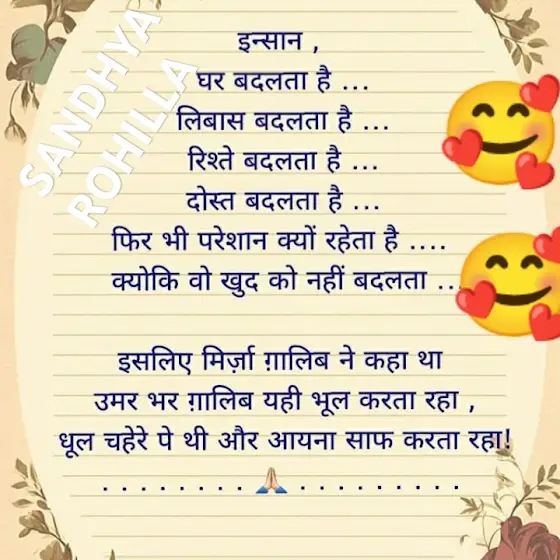 SANDHYA
ROHILLA
इन्सान ,
घर बदलता है ...
लिबास बदलता है ...
रिश्ते बदलता है ...
दोस्त बदलता है ...
फिर भी परेशान क्यों रहेता है ....
क्योकि वो खुद को नहीं बदलता ...
इसलिए मिर्ज़ा ग़ालिब ने कहा था
उमर भर ग़ालिब यही भूल करता रहा ,
धूल चहेरे पे थी और आयना साफ करता रहा!
. . . . . . . . 🙏🏻 . . . . . . . . . .